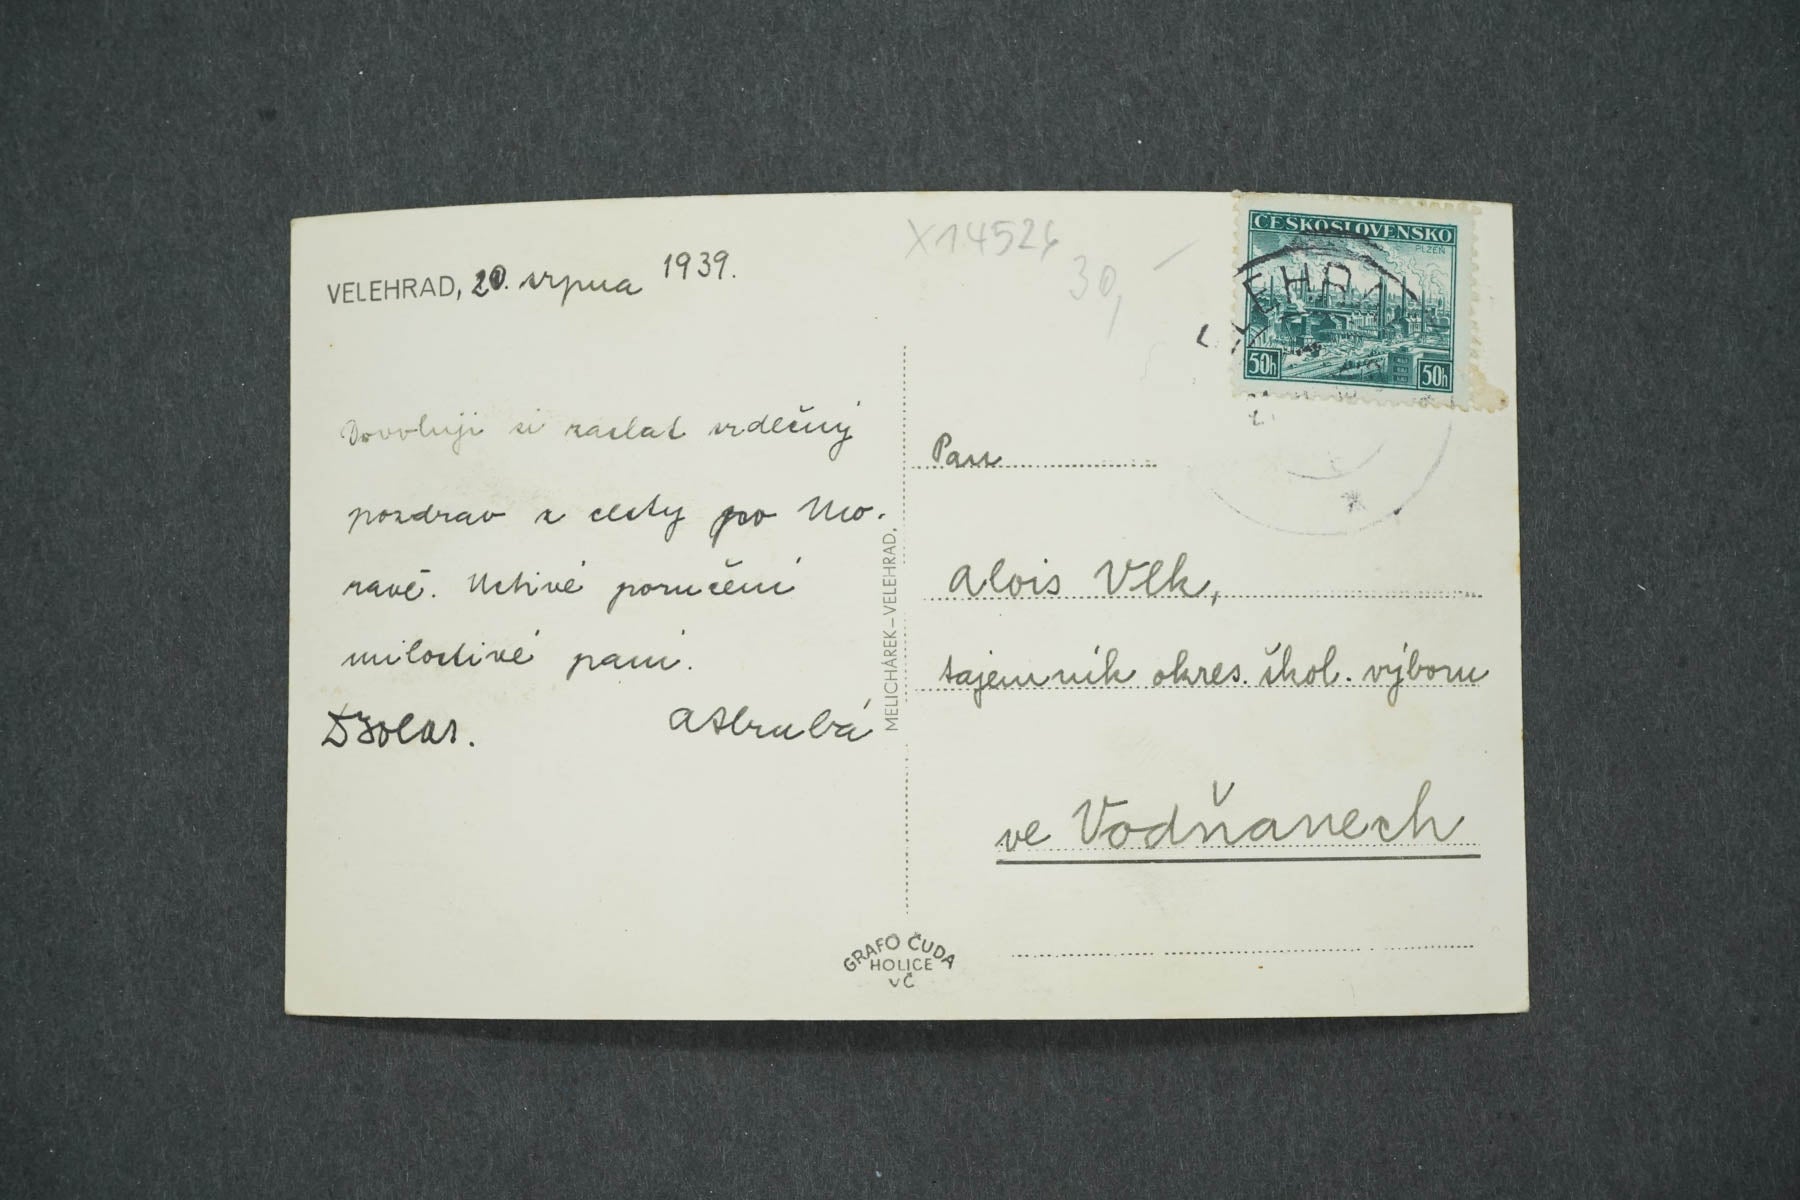 VELEHRAD, 20. srpna 1939.
Dovoluji si zaslat srdečný
pozdrav z cesty po Mo-
ravě. Uctivé poručení
milostivé paní.
AStrubá
MELICHÁREK–VELEHRAD.
GRAFO ČUDA
HOLICE
VČ
X14526
30,–
ČESKOSLOVENSKO
PLZEŇ
50h 50h
Pan
Alois Vlk,
tajemník okres. škol. výboru
ve Vodňanech